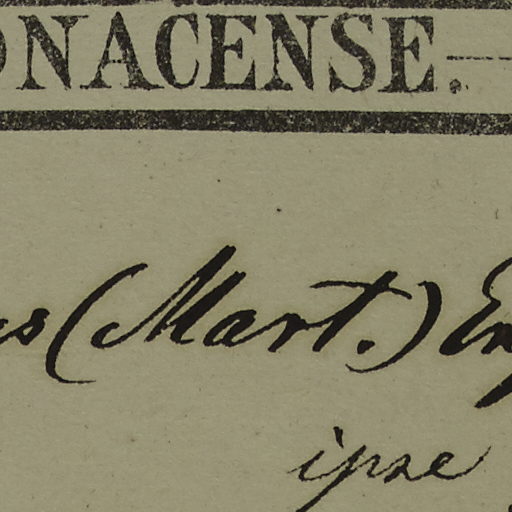 ONACENSE.
(Mart.) En
ipse